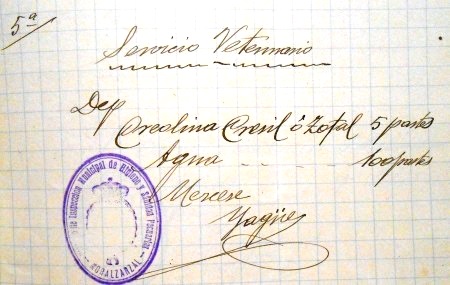 5ª
Servicio Veterinario
Dep
Creolina Cresil ó Zotal 5 partes
Agua - - - - - 100 partes
Mezcese
Yagüe
Inspección municipal de Higiene y Sanidad Pecuaria
ROBALZARZAL